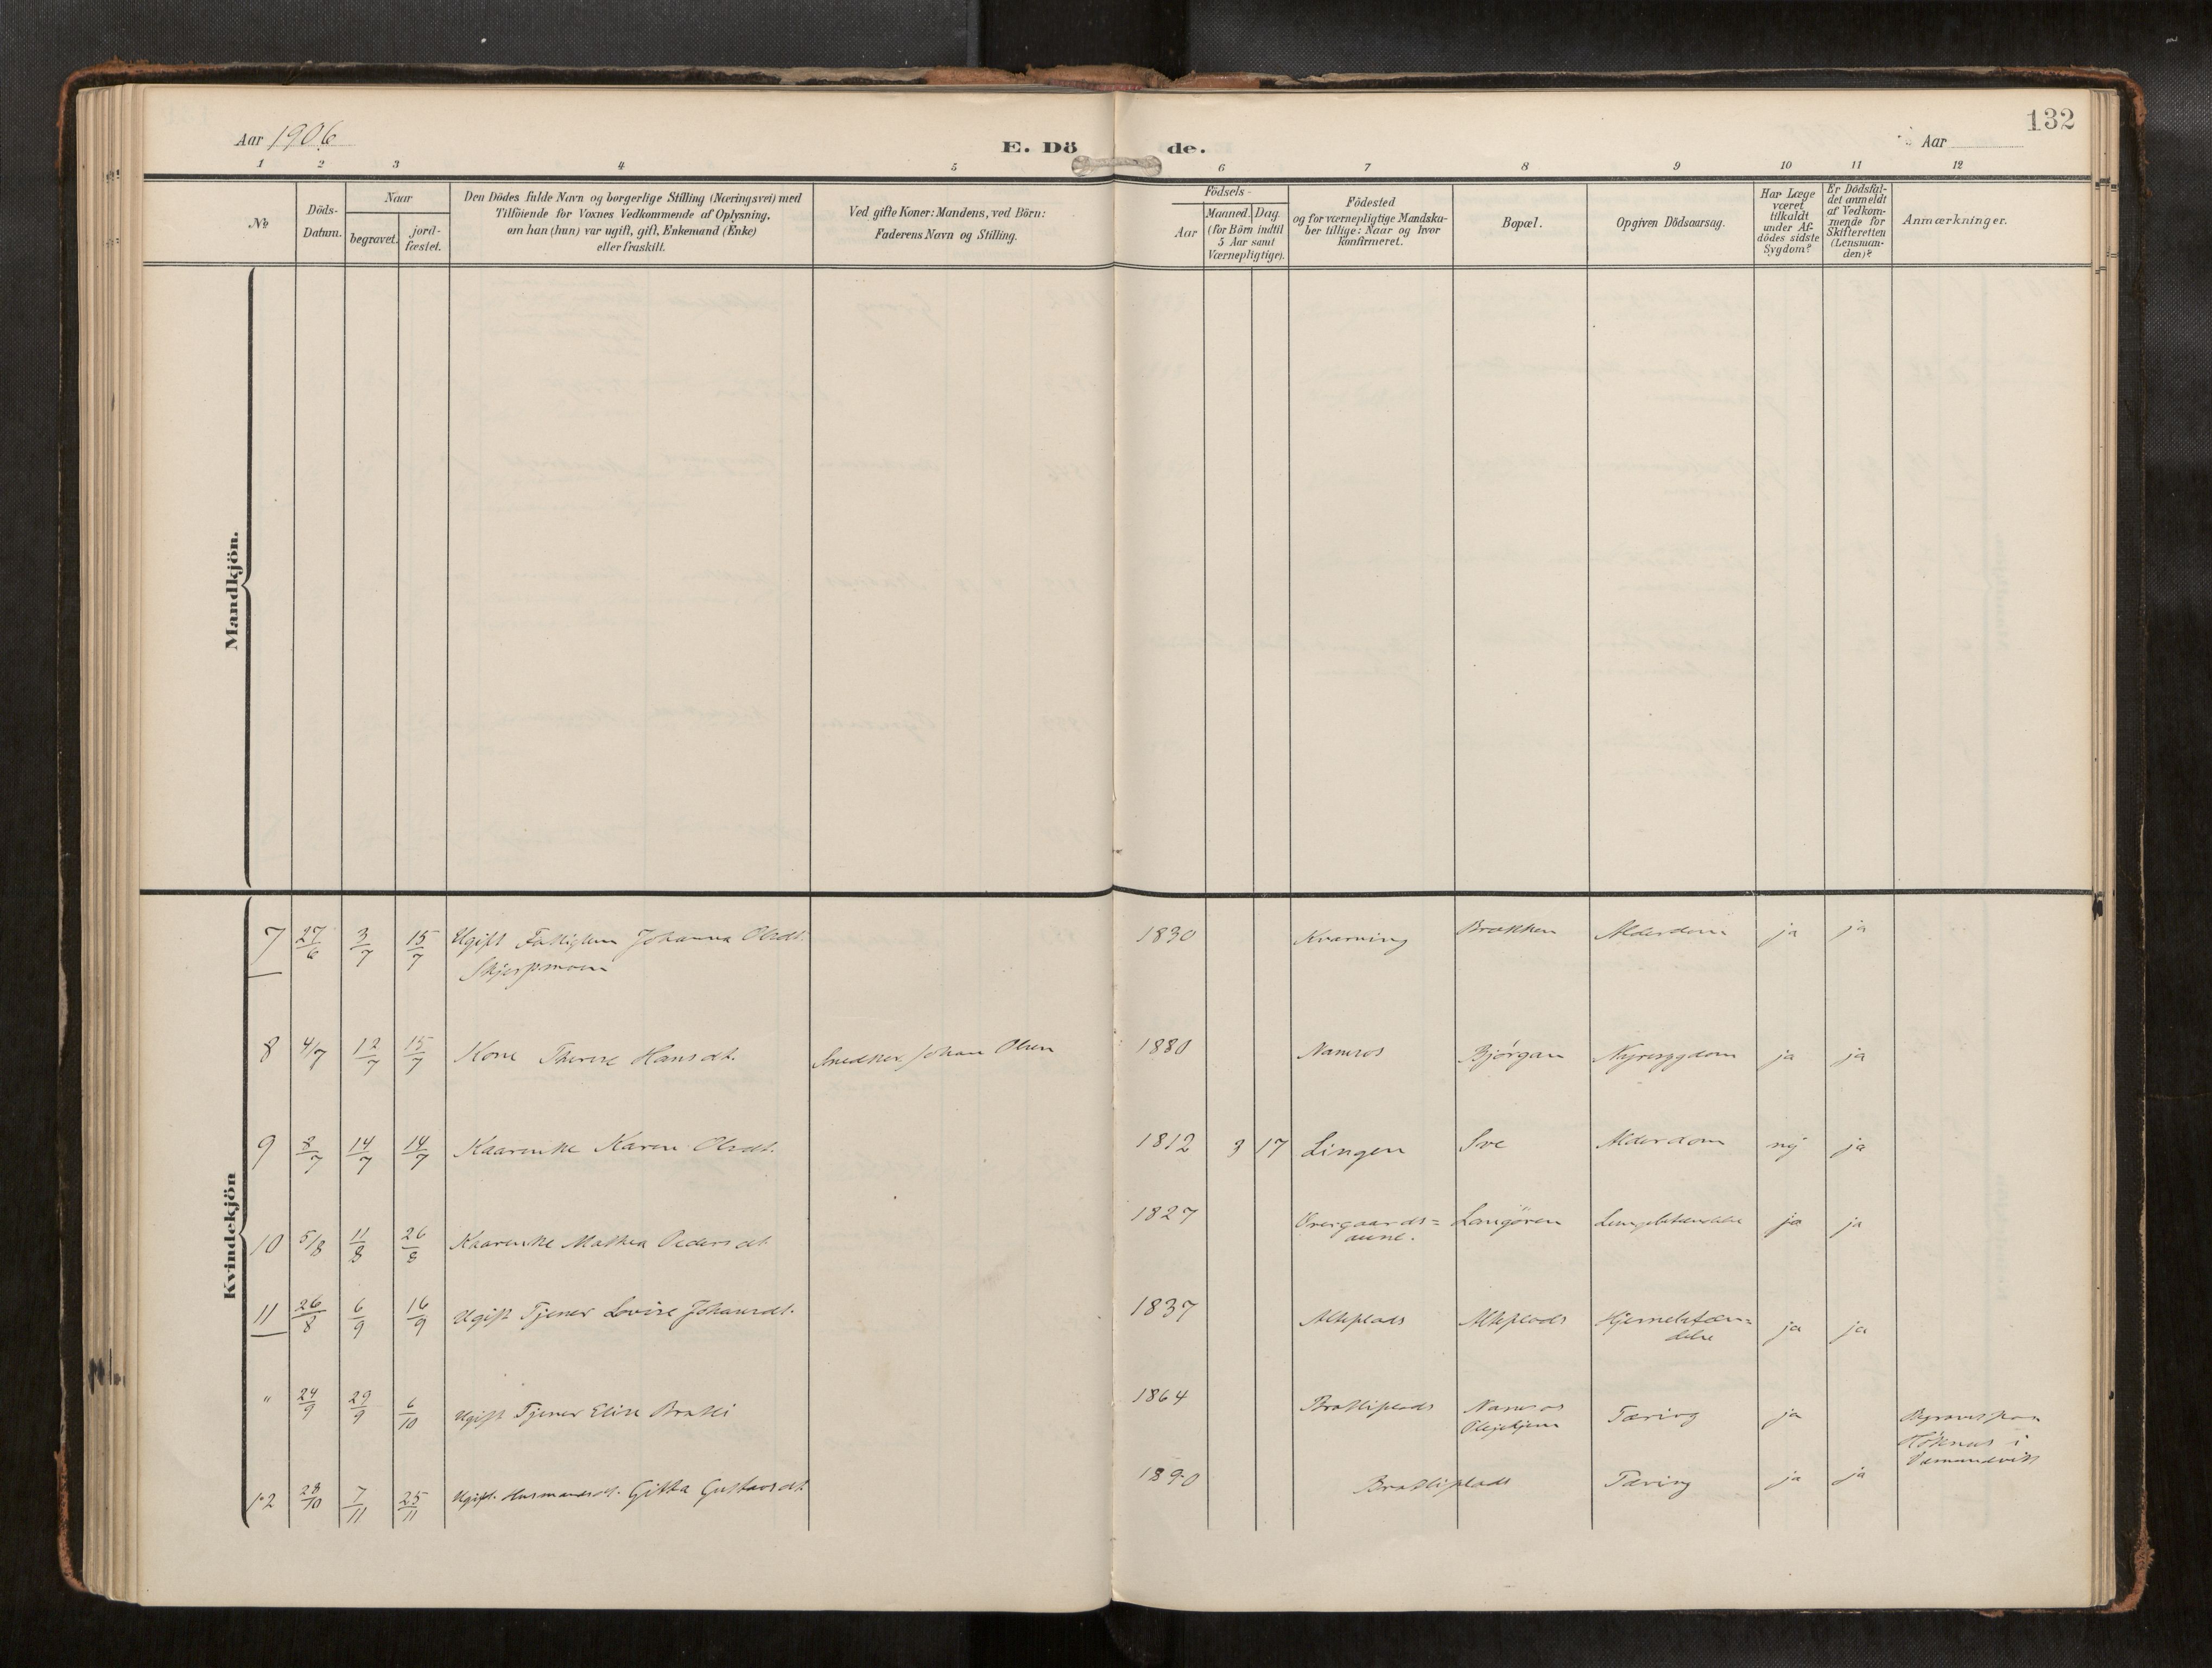 132
Aar 1906
E. Dö de.
Aar
1 2 3 4 5 6 7 8 9 10 11 12
No
Döds-
Datum.
Naar
begravet.
jord-
fæstet.
Den Dödes fulde Navn og borgerlige Stilling (Næringsvei) med
Tilföiende for Voxnes Vedkommende af Oplysning,
om han (hun) var ugift, gift, Enkemand (Enke)
eller fraskilt.
Ved gifte Koner: Mandens, ved Börn:
Faderens Navn og Stilling.
Födsels-
Aar
Maaned. Dag.
(for Börn indtil
5 Aar samt
Værnepligtige).
Födested
og for værnepligtige Mandska-
ber tillige: Naar og hvor
Konfirmeret.
Bopæl.
Opgiven Dödsaarsag.
Har Læge
været
tilkaldt
under Af-
dödes sidste
Sygdom?
Er Dödsfal-
det anmeldt
af Vedkom-
mende for
Skifteretten
(Lensman-
den)?
Anmærkninger.
Mandkjön.
Kvindekjön
7 27/6 3/7 15/7 Ugift Johanna Olsdt. 1830 Kvarving Brakken Alderdom ja ja
Skjerpmoen
8 4/7 12/7 15/7 Kone Therese Hansdt. Snedker Johan Olsen 1880 Namsos Bjørgan Nyresygdom ja ja
9 8/7 14/7 14/7 Kaarenke Karen Olsdt. 1812 3 17 Lingen Sve Alderdom nej ja
10 5/8 11/8 26/8 Kaarenke Mathea Pedersdt. 1827 Overgaards= Langøren Lungebetændelse ja ja
aune.
11 26/8 6/9 16/9 Ugift Tjener Lovise Johansdt. 1837 Hjernebetæn=
delse ja ja
" 24/9 29/9 6/10 Ugift Tjener Elise Bratli 1864 Bratliplads Namsos Tæring ja
Plejehjem
i
12 28/10 7/11 25/11 Ugift Husmandsdt. Gitta Gustavsdt. 1890 Bratliplads Tæring ja ja